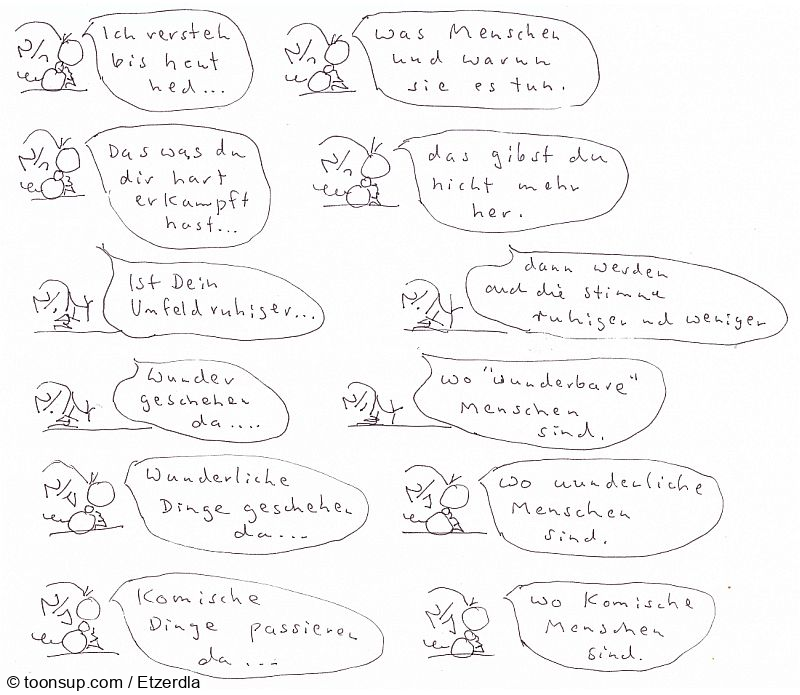 Ich versteh
bis heut
ned...
was Menschen
und warum
sie es tun.
Das was du
dir hart
erkämpft
hast...
das gibst du
nicht mehr
her.
Ist Dein
Umfeld ruhiger...
dann werden
auch die Stimme
ruhiger und weniger
Wunder
geschehen
da....
wo "wunderbare"
Menschen
sind.
Wunderliche
Dinge geschehen
da...
wo wunderliche
Menschen
sind.
Komische
Dinge passieren
da...
wo Komische
Menschen
sind.
© toonsup.com / Etzerdla